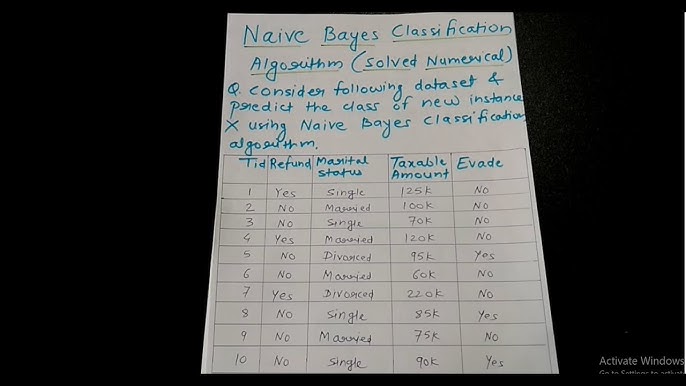 Naive Bayes Classification
Algorithm (Solved Numerical)
Q. Consider following dataset &
predict the class of new instance
X using Naive Bayes Classification
algorithm.
Tid Refund Marital Status Taxable Amount Evade
1 Yes Single 125K No
2 No Married 100K No
3 No Single 70K No
4 Yes Married 120K No
5 No Divorced 95K Yes
6 No Married 60K No
7 Yes Divorced 220K No
8 No Single 85K Yes
9 No Married 75K No
10 No Single 90K Yes
Activate Windows
Go to Settings to activate